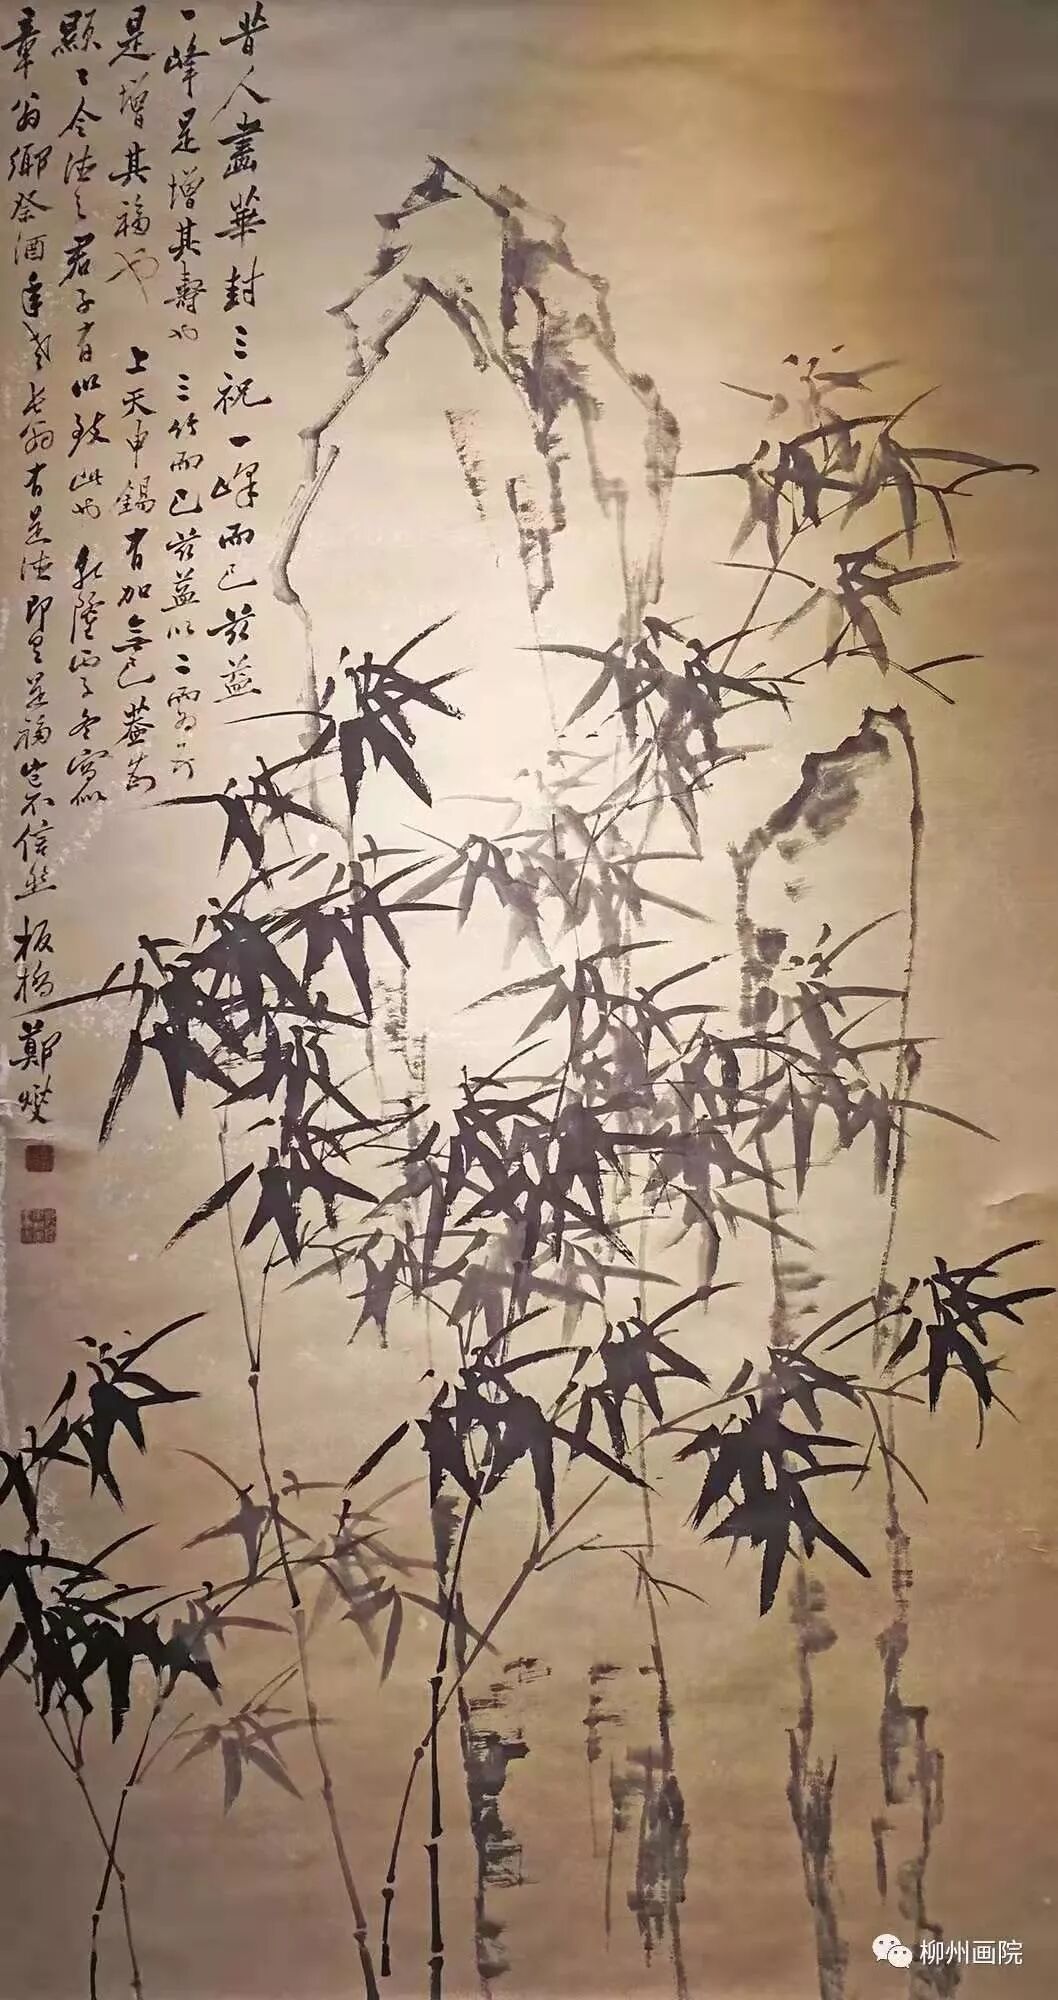 昔人畫華封三祝一峰而已茲益
一峰是增其壽也三竹而已茲益以二而為五
是增其福也上天申錫有加無已蓋為
顯〻令德之君子有以致此也乾隆丙子冬寫似
章翁鄉祭酒年老長翁有是德即是是福豈不信然板橋鄭燮
柳州画院